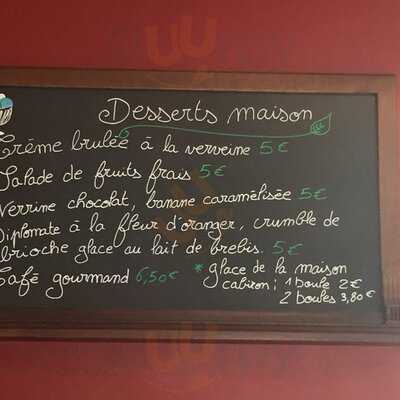 Desserts maison
Crème brulée à la verveine 5€
Salade de fruits frais 5€
Verrine chocolat, banane caramélisée 5€
Diplomate à la fleur d'oranger, crumble de
brioche glace au lait de brebis. 5€
Café gourmand 6,50€
* glace de la maison
cabiron ; 1 boule 2€
2 boules 3,80€